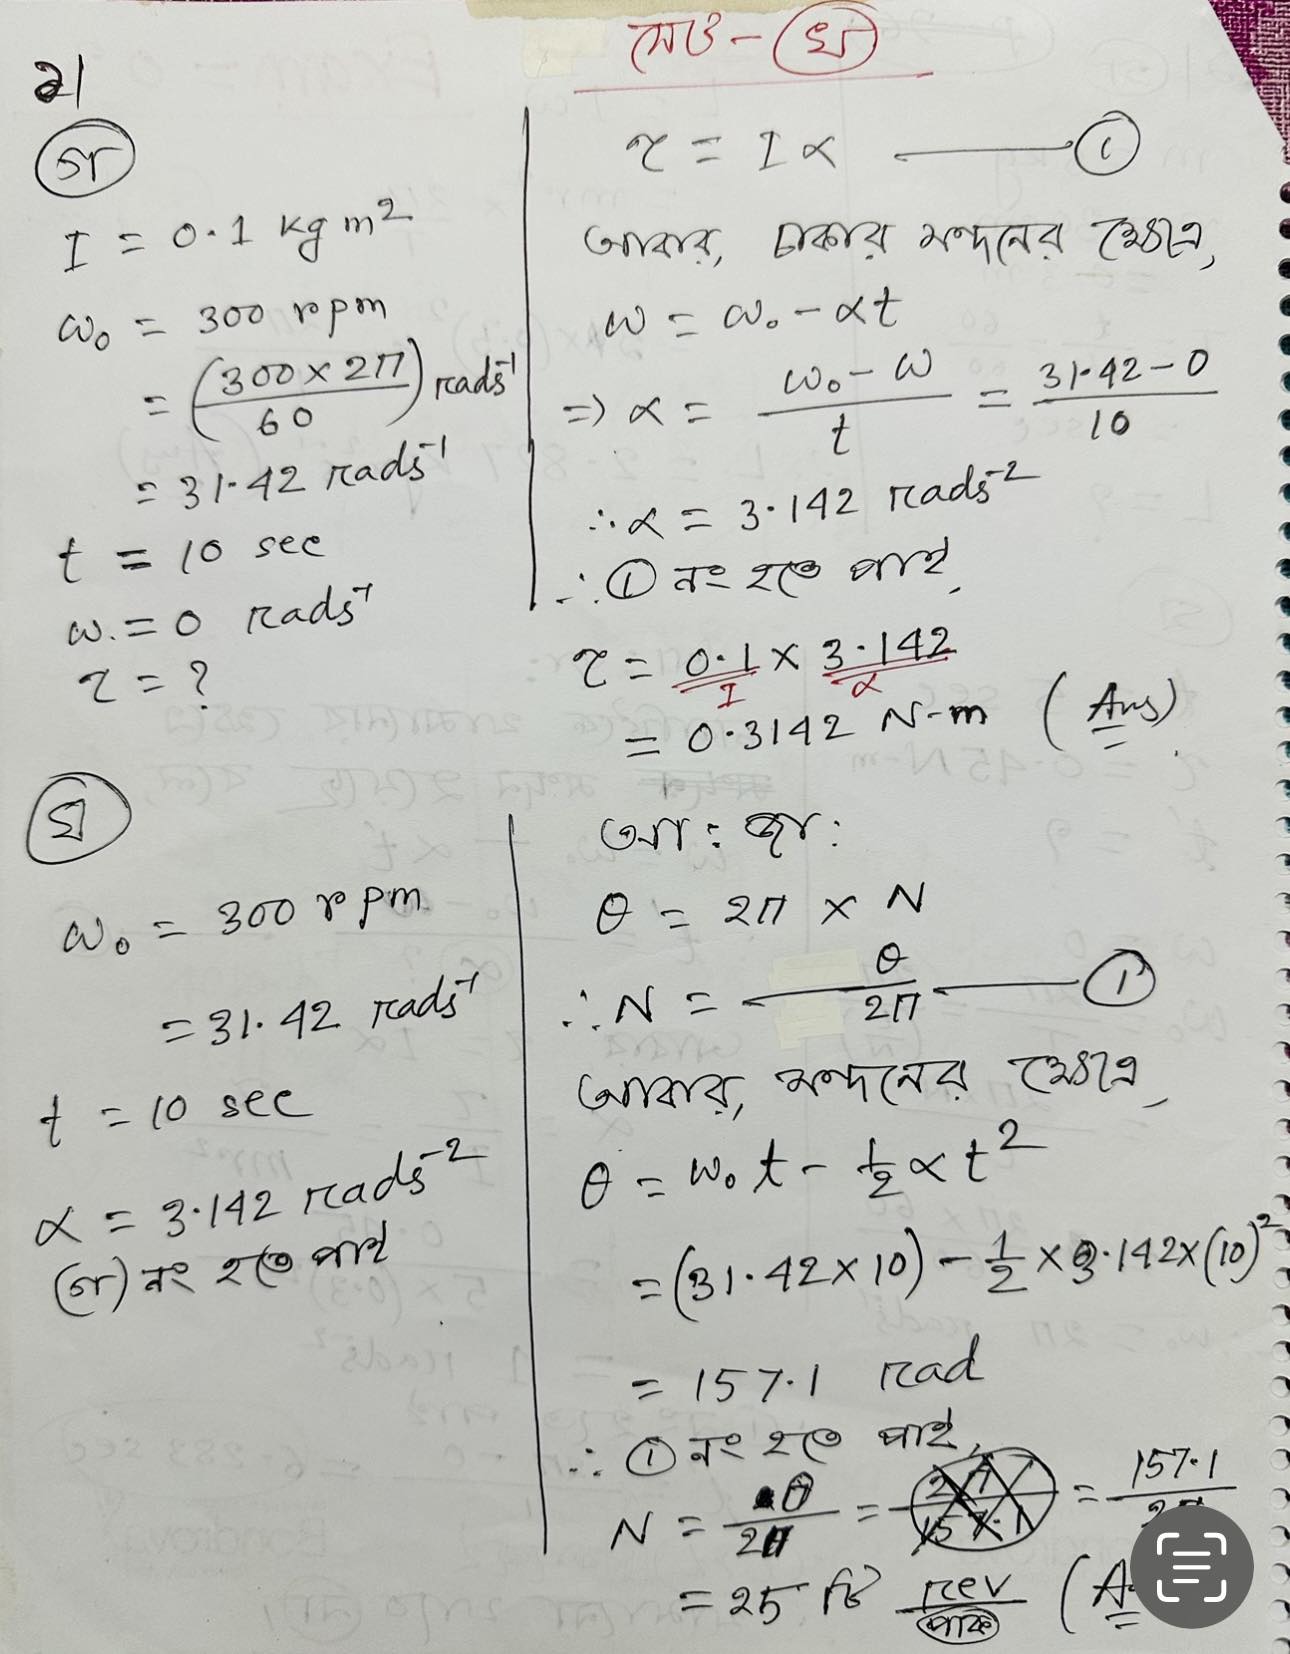 সেট - খ
২|
গ
I = 0.1 kg m²
ω₀ = 300 rpm
= (300 × 2π / 60) rads⁻¹
= 31.42 rads⁻¹
t = 10 sec
ω = 0 rads⁻¹
τ = ?
τ = I α ——— ①
আবার, চাকার মন্দনের ক্ষেত্রে,
ω = ω₀ - αt
=> α = (ω₀ - ω) / t = (31.42 - 0) / 10
∴ α = 3.142 rads⁻²
∴ ① নং হতে পাই,
τ = 0.1 × 3.142
I α
= 0.3142 N-m (Ans)
ঘ
ω₀ = 300 rpm
= 31.42 rads⁻¹
t = 10 sec
α = 3.142 rads⁻²
(গ) নং হতে পাই
আ: জা:
θ = 2π × N
∴ N = θ / 2π ——— ①
আবার, মন্দনের ক্ষেত্রে,
θ = ω₀ t - ½ α t²
= (31.42 × 10) - ½ × 3.142 × (10)²
= 157.1 rad
∴ ① নং হতে পাই,
N = θ / 2π = = 157.1 / 2π
= 25 টি rev
পাক